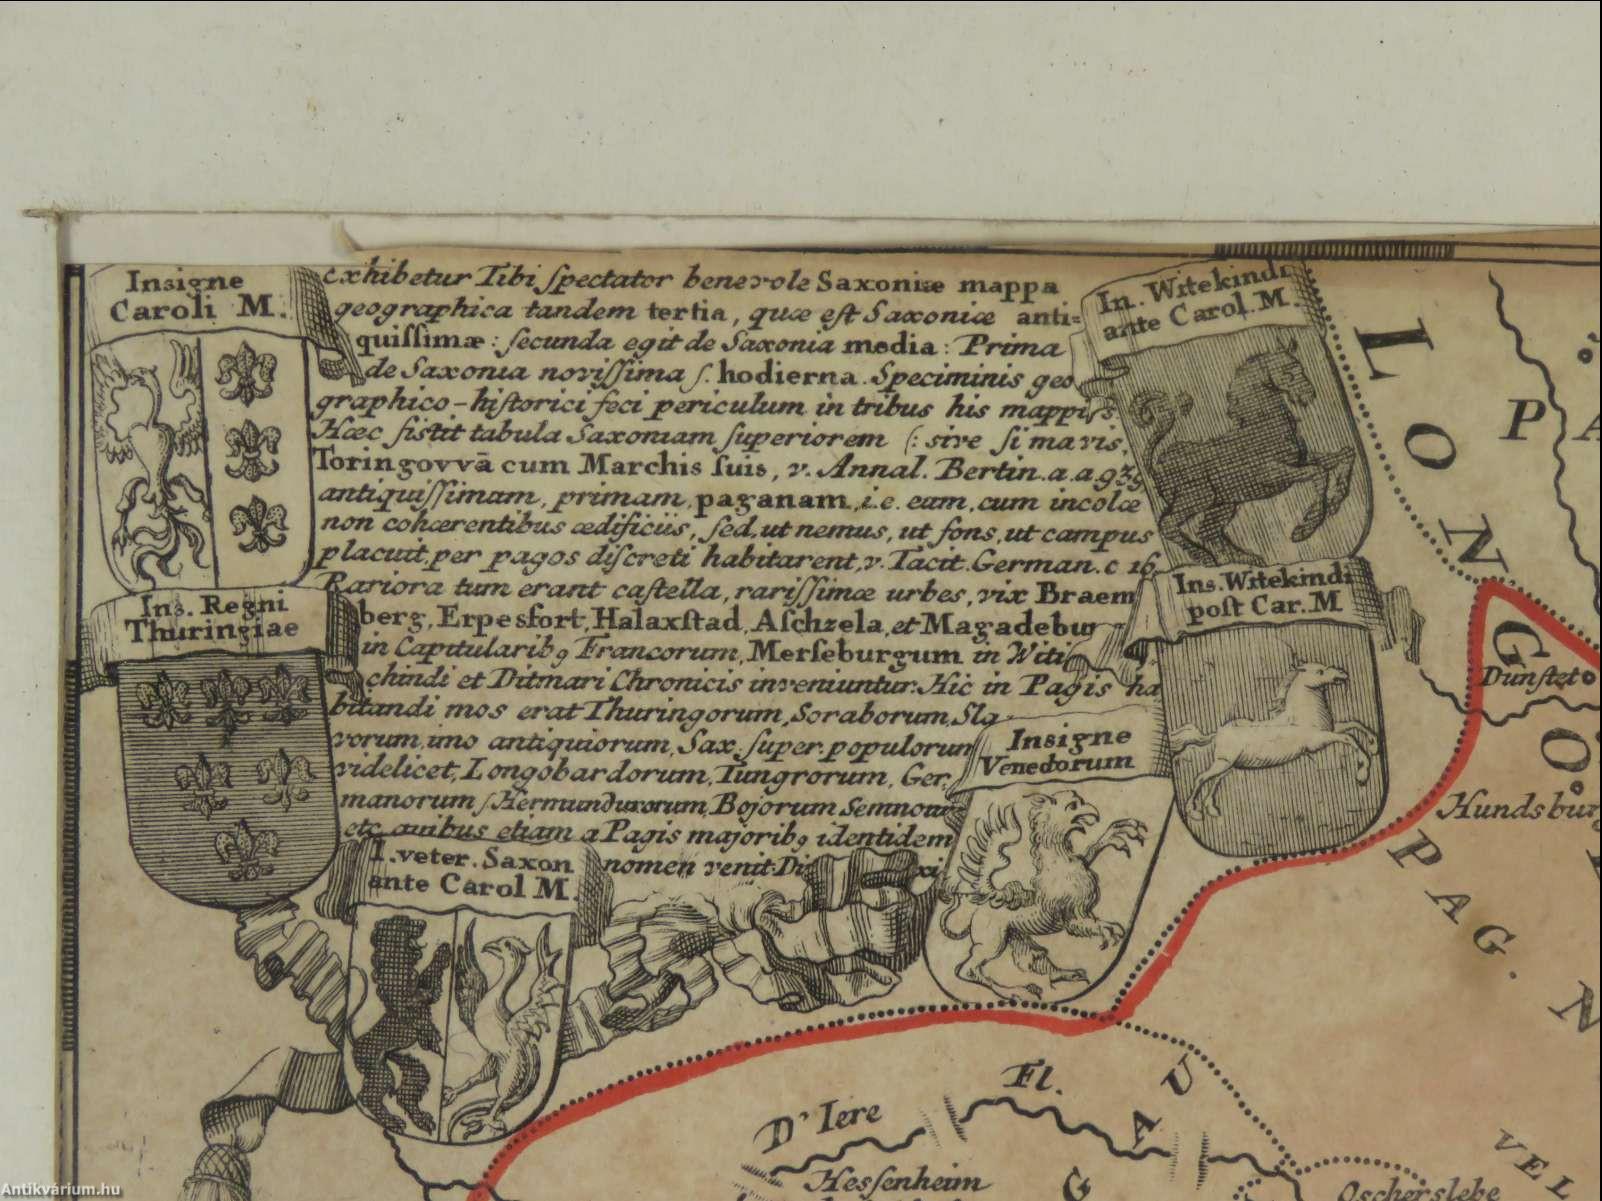 Insigne
Caroli M.
exhibetur Tibi ſpectator benevole Saxoniæ mappa
geographica tandem tertia, quæ eſt Saxoniæ anti=
quiſſimæ: ſecunda egit de Saxonia media: Prima
de Saxonia noviſſima ſ. hodierna. Speciminis geo
graphico-hiſtorici feci periculum in tribus his mappis.
Hæc ſiſtit tabula Saxoniam ſuperiorem (: sive ſi mavis,
Toringovvā cum Marchis ſuis, v. Annal. Bertin. a. a. 939
antiquiſſimam, primam, paganam, i.e. eam, cum incolæ
non cohærentibus ædificiis, ſed, ut nemus, ut fons, ut campus
placuit, per pagos diſcreti habitarent, v. Tacit. German. c 16.
Rariora tum erant caſtella, rariſſimæ urbes, vix Braem
berg, Erpesfort, Halaxſtad, Aſchzela, et Magadebur
in Capitularibꝯ Francorum, Merſeburgum in Witi
chindi et Ditmari Chronicis inveniuntur. Hic in Pagis ha
bitandi mos erat Thuringorum, Soraborum, Sla
vorum, imo antiquiorum, Sax. ſuper. populorum
videlicet, Longobardorum, Tungrorum, Ger,
manorum ſ Hermundurorum, Bojorum Semnonu
etc. quibus etiam a Pagis majoribꝯ identidem
nomen venit. Di xi
Ins. Regni
Thuringiae
I. veter. Saxon
ante Carol M.
In. Witekindi
ante Carol. M.
Ins. Witekindi
poſt Car. M
Insigne
Venedorum
LONGO
PA
Dunſtet
Hundsbur
PAG. N
Fl.
D' Iere
GAU
Heſſenheim
VEL
Oscherslebe
Antikvárium.hu